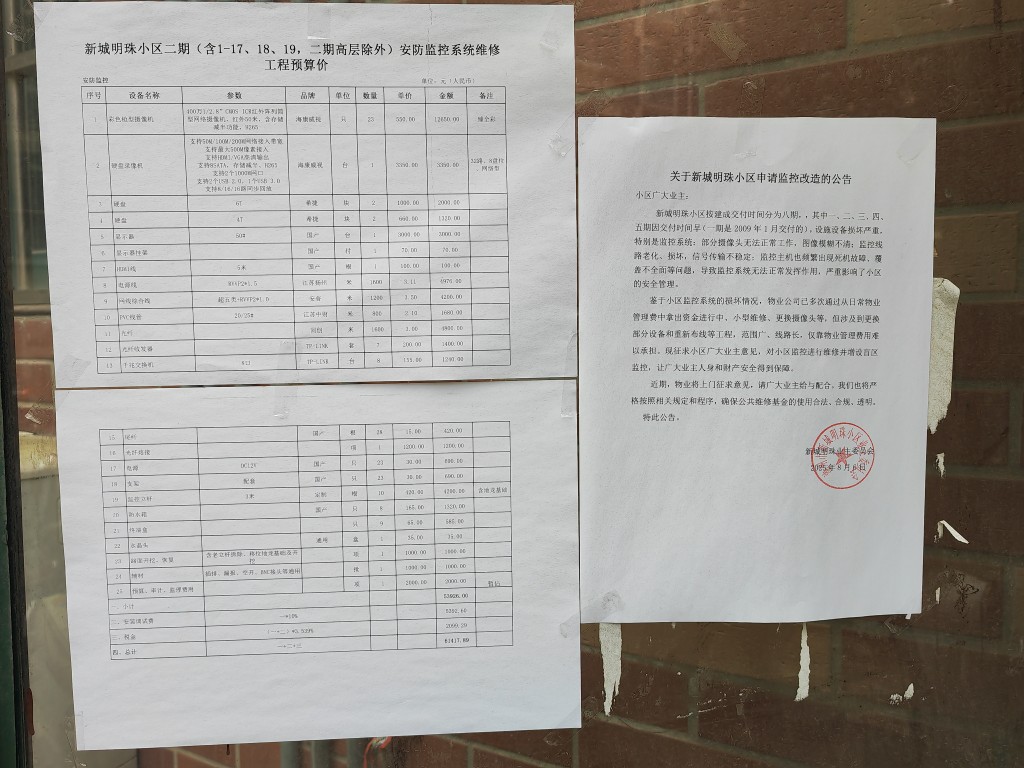 新城明珠小区二期（含1-17、18、19，二期高层除外）安防监控系统维修
工程预算价
安防监控 单位：元（人民币）
序号 设备名称 参数 品牌 单位 数量 单价 金额 备注
1 彩色枪型摄像机 400万1/2.8"CMOS ICR红外阵列筒型网络摄像机，红外50米，含存储减半功能，H265 海康威视 只 23 550.00 12650.00
2 硬盘录像机 支持50M/100M/200M网络接入带宽 支持最大500W像素接入 支持HDMI/VGA高清输出 支持2个1000M网口 支持2个USB 2.0，1个USB 3.0 支持8/16/16路同步回放 海康威视 台 1 3350.00 3350.00 32路，8盘位，网络型
3 硬盘 6T 希捷 块 2 1000.00 2000.00
4 硬盘 4T 希捷 块 2 660.00 1320.00
5 显示器 50# 国产 台 1 3000.00 3000.00
6 显示器挂架 国产 付 1 70.00 70.00
7 HDMI线 5米 国产 根 1 100.00 100.00
8 电源线 RVVP2*1.5 江苏扬州 米 1600 3.11 4976.00
9 网线综合线 超五类+RVVP2*1.0 安普 米 1200 3.50 4200.00
10 PVC线管 20/25# 江苏中财 米 800 2.10 1680.00
11 光纤 米 1600 3.00 4800.00
12 光纤收发器 TP-LINK 套 7 200.00 1400.00
13 千兆交换机 TP-LINK 台 8 155.00 1240.00
15 尾纤 国产 根 28 15.00 420.00
16 光纤熔接 项 1 1200.00 1200.00
17 电源 DC12V 国产 只 23 30.00 690.00
18 支架 配套 国产 只 23 30.00 690.00
19 监控立杆 3米 定制 根 10 420.00 4200.00 含地笼基础
20 防水箱 国产 只 8 165.00 1320.00
21 终端盒 只 9 65.00 585.00
22 水晶头 通用 盒 1 35.00 35.00
23 路面开挖、恢复 项 1 1000.00 1000.00
24 辅材 插排、漏保、空开、BNC接头等通用 批 1 1000.00 1000.00
25 预算、审计、监理费用 项 1 2000.00 2000.00 暂估
一、小计 53926.00
二、安装调试费 一*10% 5392.60
三、税金 （一+二）*3.539% 2099.29
四、总计 一+二+三 61417.89
关于新城明珠小区申请监控改造的公告
小区广大业主：
新城明珠小区按建成交付时间分为八期，，其中一、二、三、四、
五期因交付时间早（一期是 2009 年 1 月交付的），设施设备损坏严重。
特别是监控系统：部分摄像头无法正常工作，图像模糊不清；监控线
路老化、损坏，信号传输不稳定；监控主机也频繁出现死机故障、覆
盖不全面等问题，导致监控系统无法正常发挥作用，严重影响了小区
的安全管理。
鉴于小区监控系统的损坏情况，物业公司已多次通过从日常物业
管理费中拿出资金进行中、小型维修、更换摄像头等，但涉及到更换
部分设备和重新布线等工程，范围广、线路长，仅靠物业管理费用难
以承担。现征求小区广大业主意见，对小区监控进行维修并增设盲区
监控，让广大业主人身和财产安全得到保障。
近期，物业将上门征求意见，请广大业主给与配合，我们也将严
格按照相关规定和程序，确保公共维修基金的使用合法、合规、透明。
特此公告。
新城明珠业主委员会
2025年 8 月 6 日